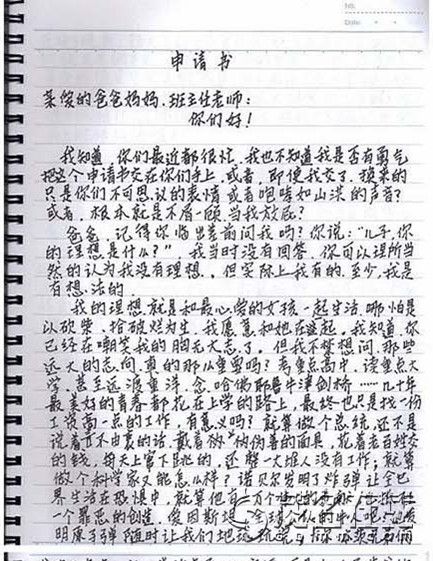 NO.
Date:
申请书
亲爱的爸爸妈妈,班主任老师:
你们好!
我知道,你们最近都很忙,我也不知道我是否有勇气
把这个申请书交在你们手上,或者,即使我交了,换来的
只是你们不可思议的表情或者咆哮如山洪的声音?
或者,根本就是不屑一顾,当我放屁?
爸爸,记得你临出差前问我吗?你说:“儿子,你
的理想是什么?”,我当时没有回答,你可以理所当
然的认为我没有理想,但实际上我有的,至少,我是
有想法的。
我的理想就是和最心爱的女孩一起生活,哪怕是
以砍柴、拾破烂为生,我愿意和她在一起。我知道,你
已经在嘲笑我的胸无大志了。但我不禁想问,那些
远大的志向,真的那么重要吗?考重点高中,读重点大
学,甚至远渡重洋,念哈佛耶鲁牛津剑桥……几十年
最美好的青春都花在上学的路上,最终也只是找一份
工资高一点的工作,有意义吗?就算做个总统,还不是
说着言不由衷的话,戴着伪善的面具,花着老百姓交
的钱,每天上窜下跳的,还整一大堆人没有工作;就算
做个科学家又能怎么样?诺贝尔发明了炸弹让全世
界生活在恐惧中,就算他有
一个罪恶的创造,爱因斯坦,全球公认的牛人吧,他发
明原子弹,随时让我们地球